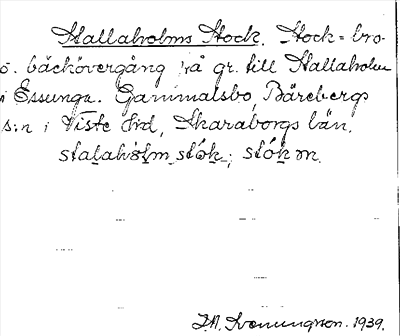 Stallaholms Stock. Stock = bro
o. bäckövergång på gr. till Stallaholm
i Essunga. Gammalsbo, Bärebergs
s:n i Viste Hrd, Skaraborgs län.
stalahòlm stók; stók m.
1939.